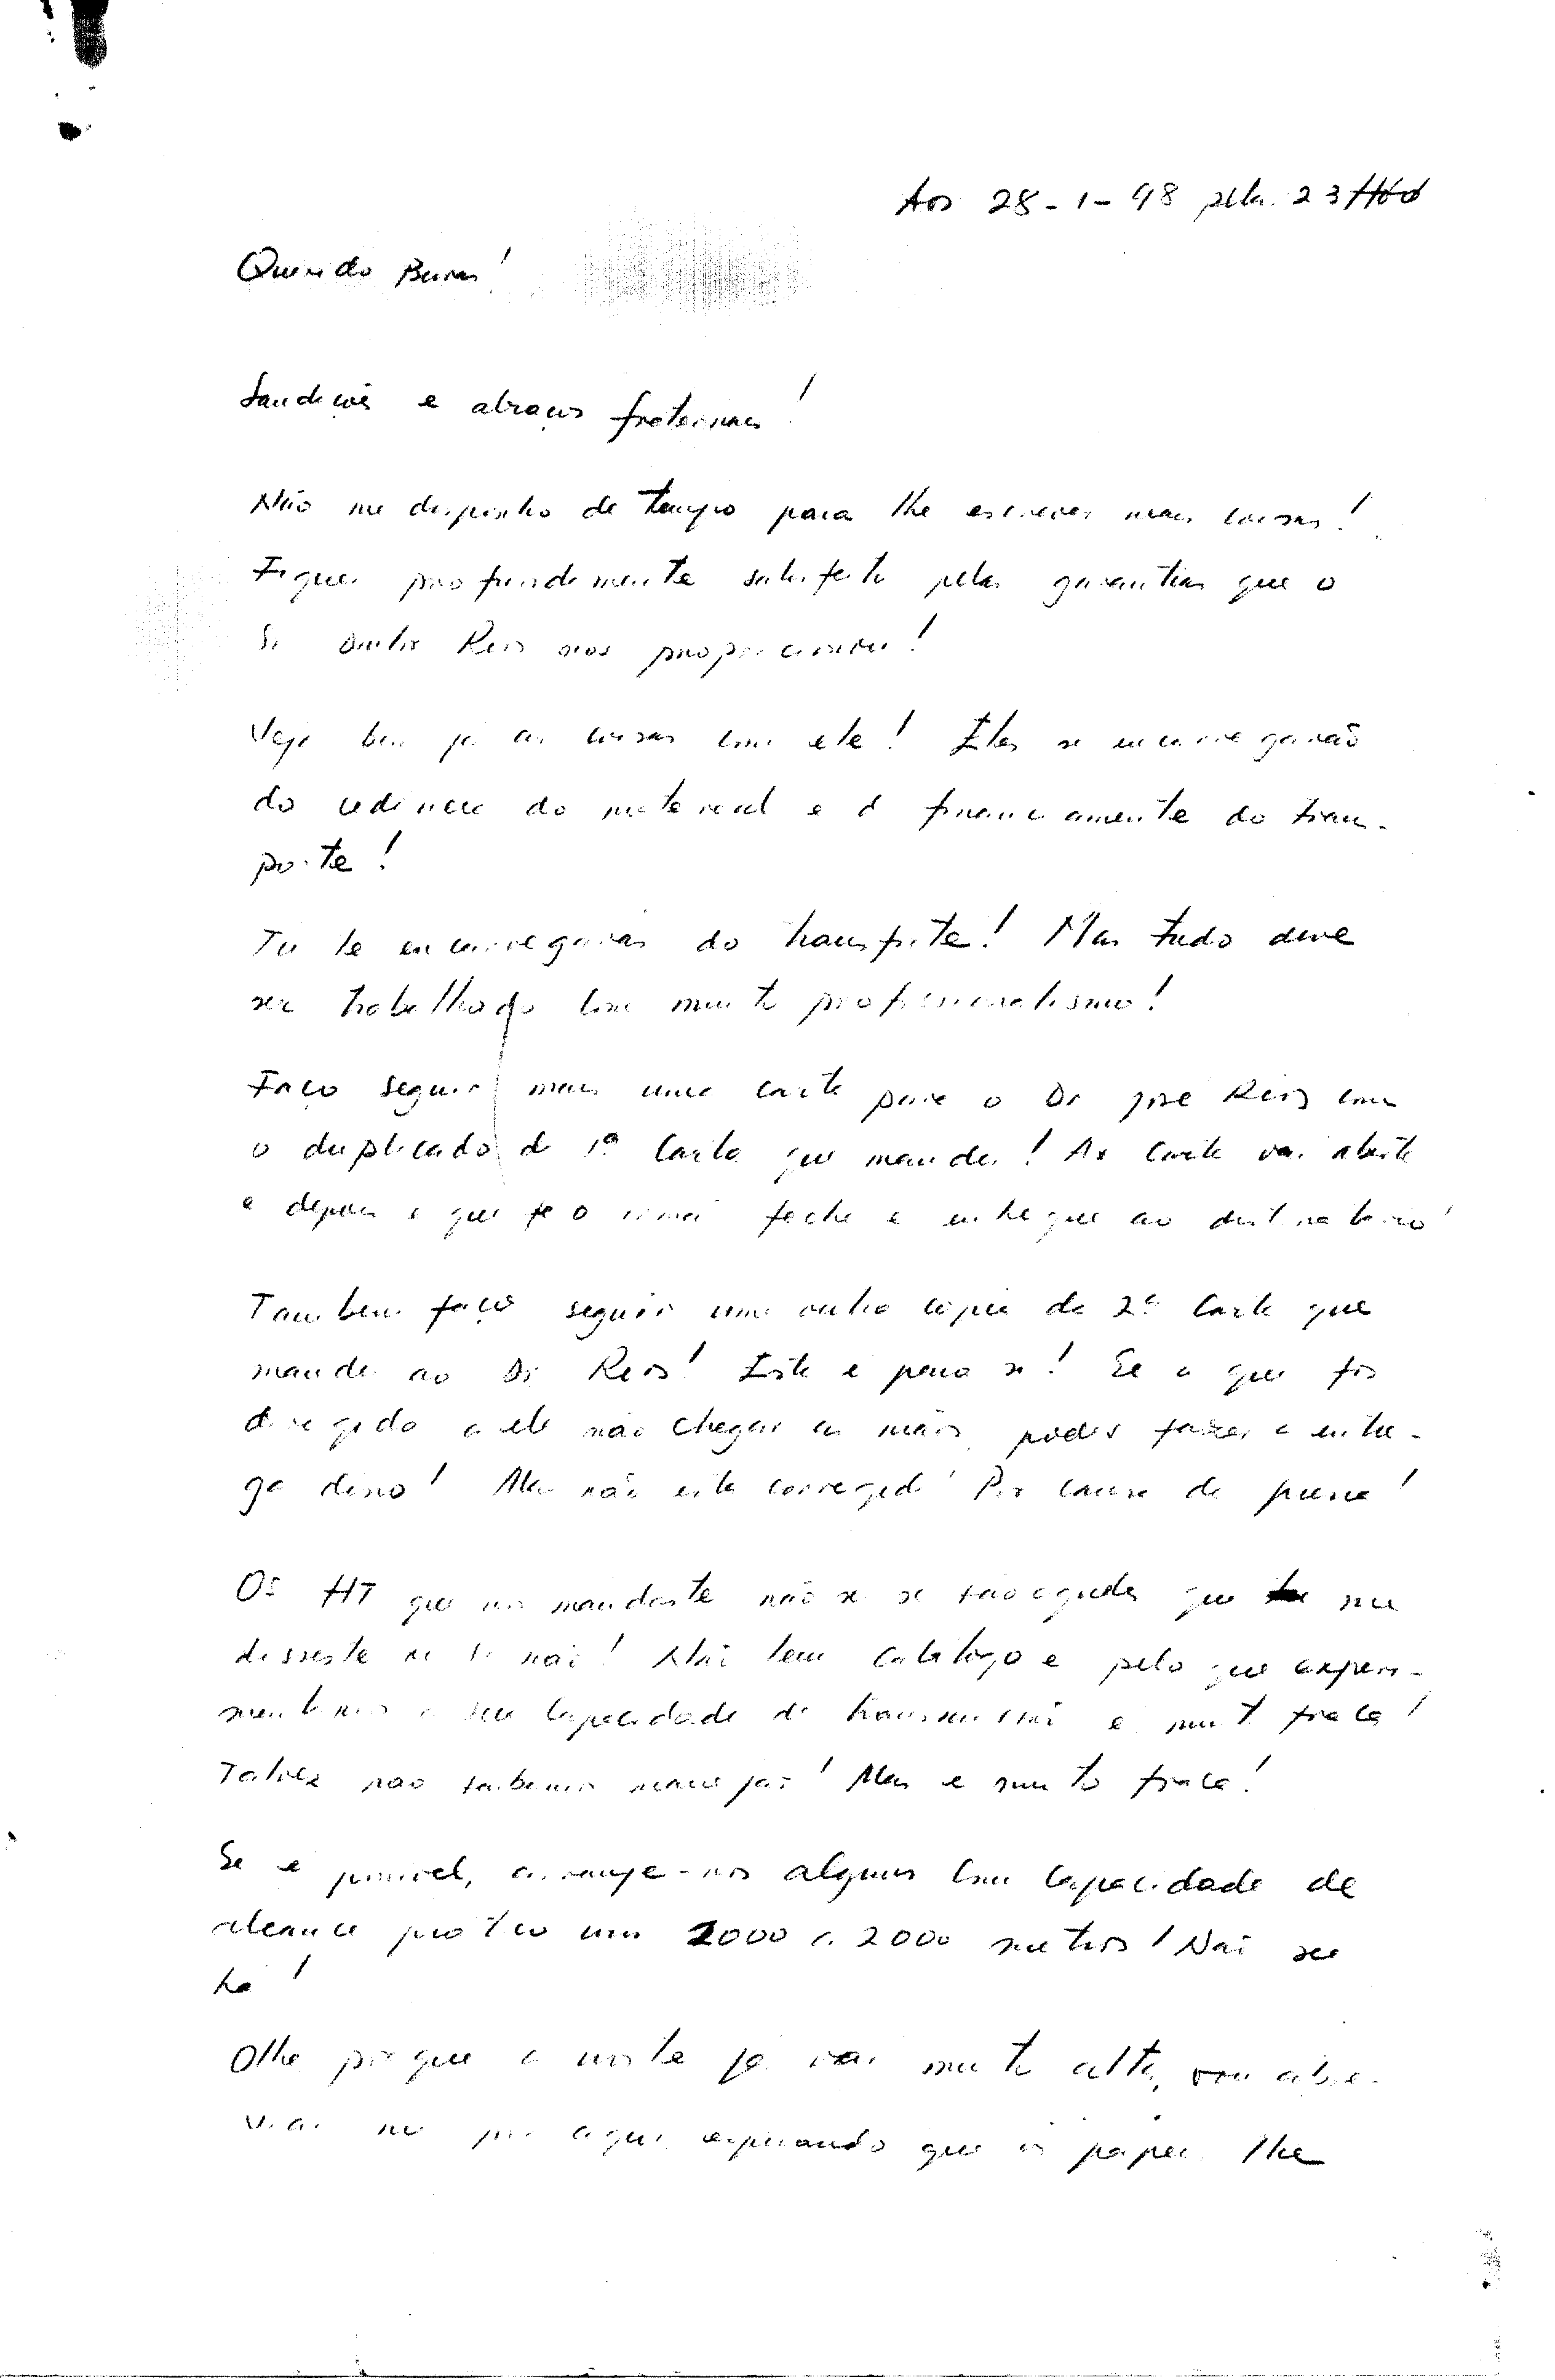 Aos 28-1-98 pelas 23H00
Querido
Saudações e abraços fraternais!
Não me disponho de tempo para lhe escrever mais coisas!
Fiquei profundamente satisfeito pelas garantias que o
Sr Doutor Reis nos proporcionou!
Veja bem já as coisas com ele! Eles se encarregarão
do do material e o financiamente do trans-
porte!
Tu te encarregaras do transporte! Mas tudo deve
ser trabalhado com muito profissionalismo!
Faço seguir mais uma carta para o Dr José Reis com
o duplicado da 1ª Carta que mandei! As Carta vai aberta
e depois é que o irmão feche e entregue ao destinatario!
Tambem faço seguir uma outra copia da 2ª Carta que
mandei ao Dr Reis! Esta é para si! Se a que foi
dirigida a ele não chegar as mãos, podes fazer a entre-
ga disso! Mas não esta corregida! Por causa da pressa!
Os HT que nos mandaste não sei se são aqueles que me
disseste ou se não! Não tem Catalogo e pelo que experi-
mentamos a sua capacidade de transmissão é muit fraca!
Talvez não sabemos manejar! Mas é muito fraca!
Se é possivel, arranje-nos alguns com capacidade de
alcance uns 2000 a 2000 metros! Não sei
há!
Olhe porque a noite já vai muito alta, vou abre-
viar me por aqui esperando que os papeis lhe